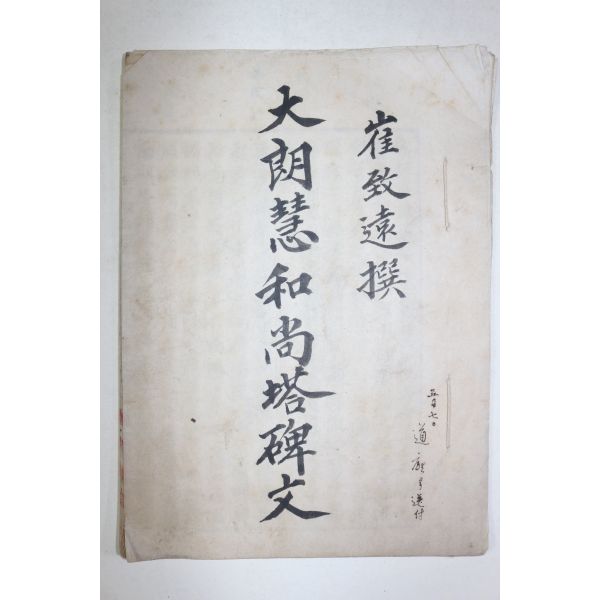 崔致遠撰
大朗慧和尚塔碑文
五月七日
道 送付